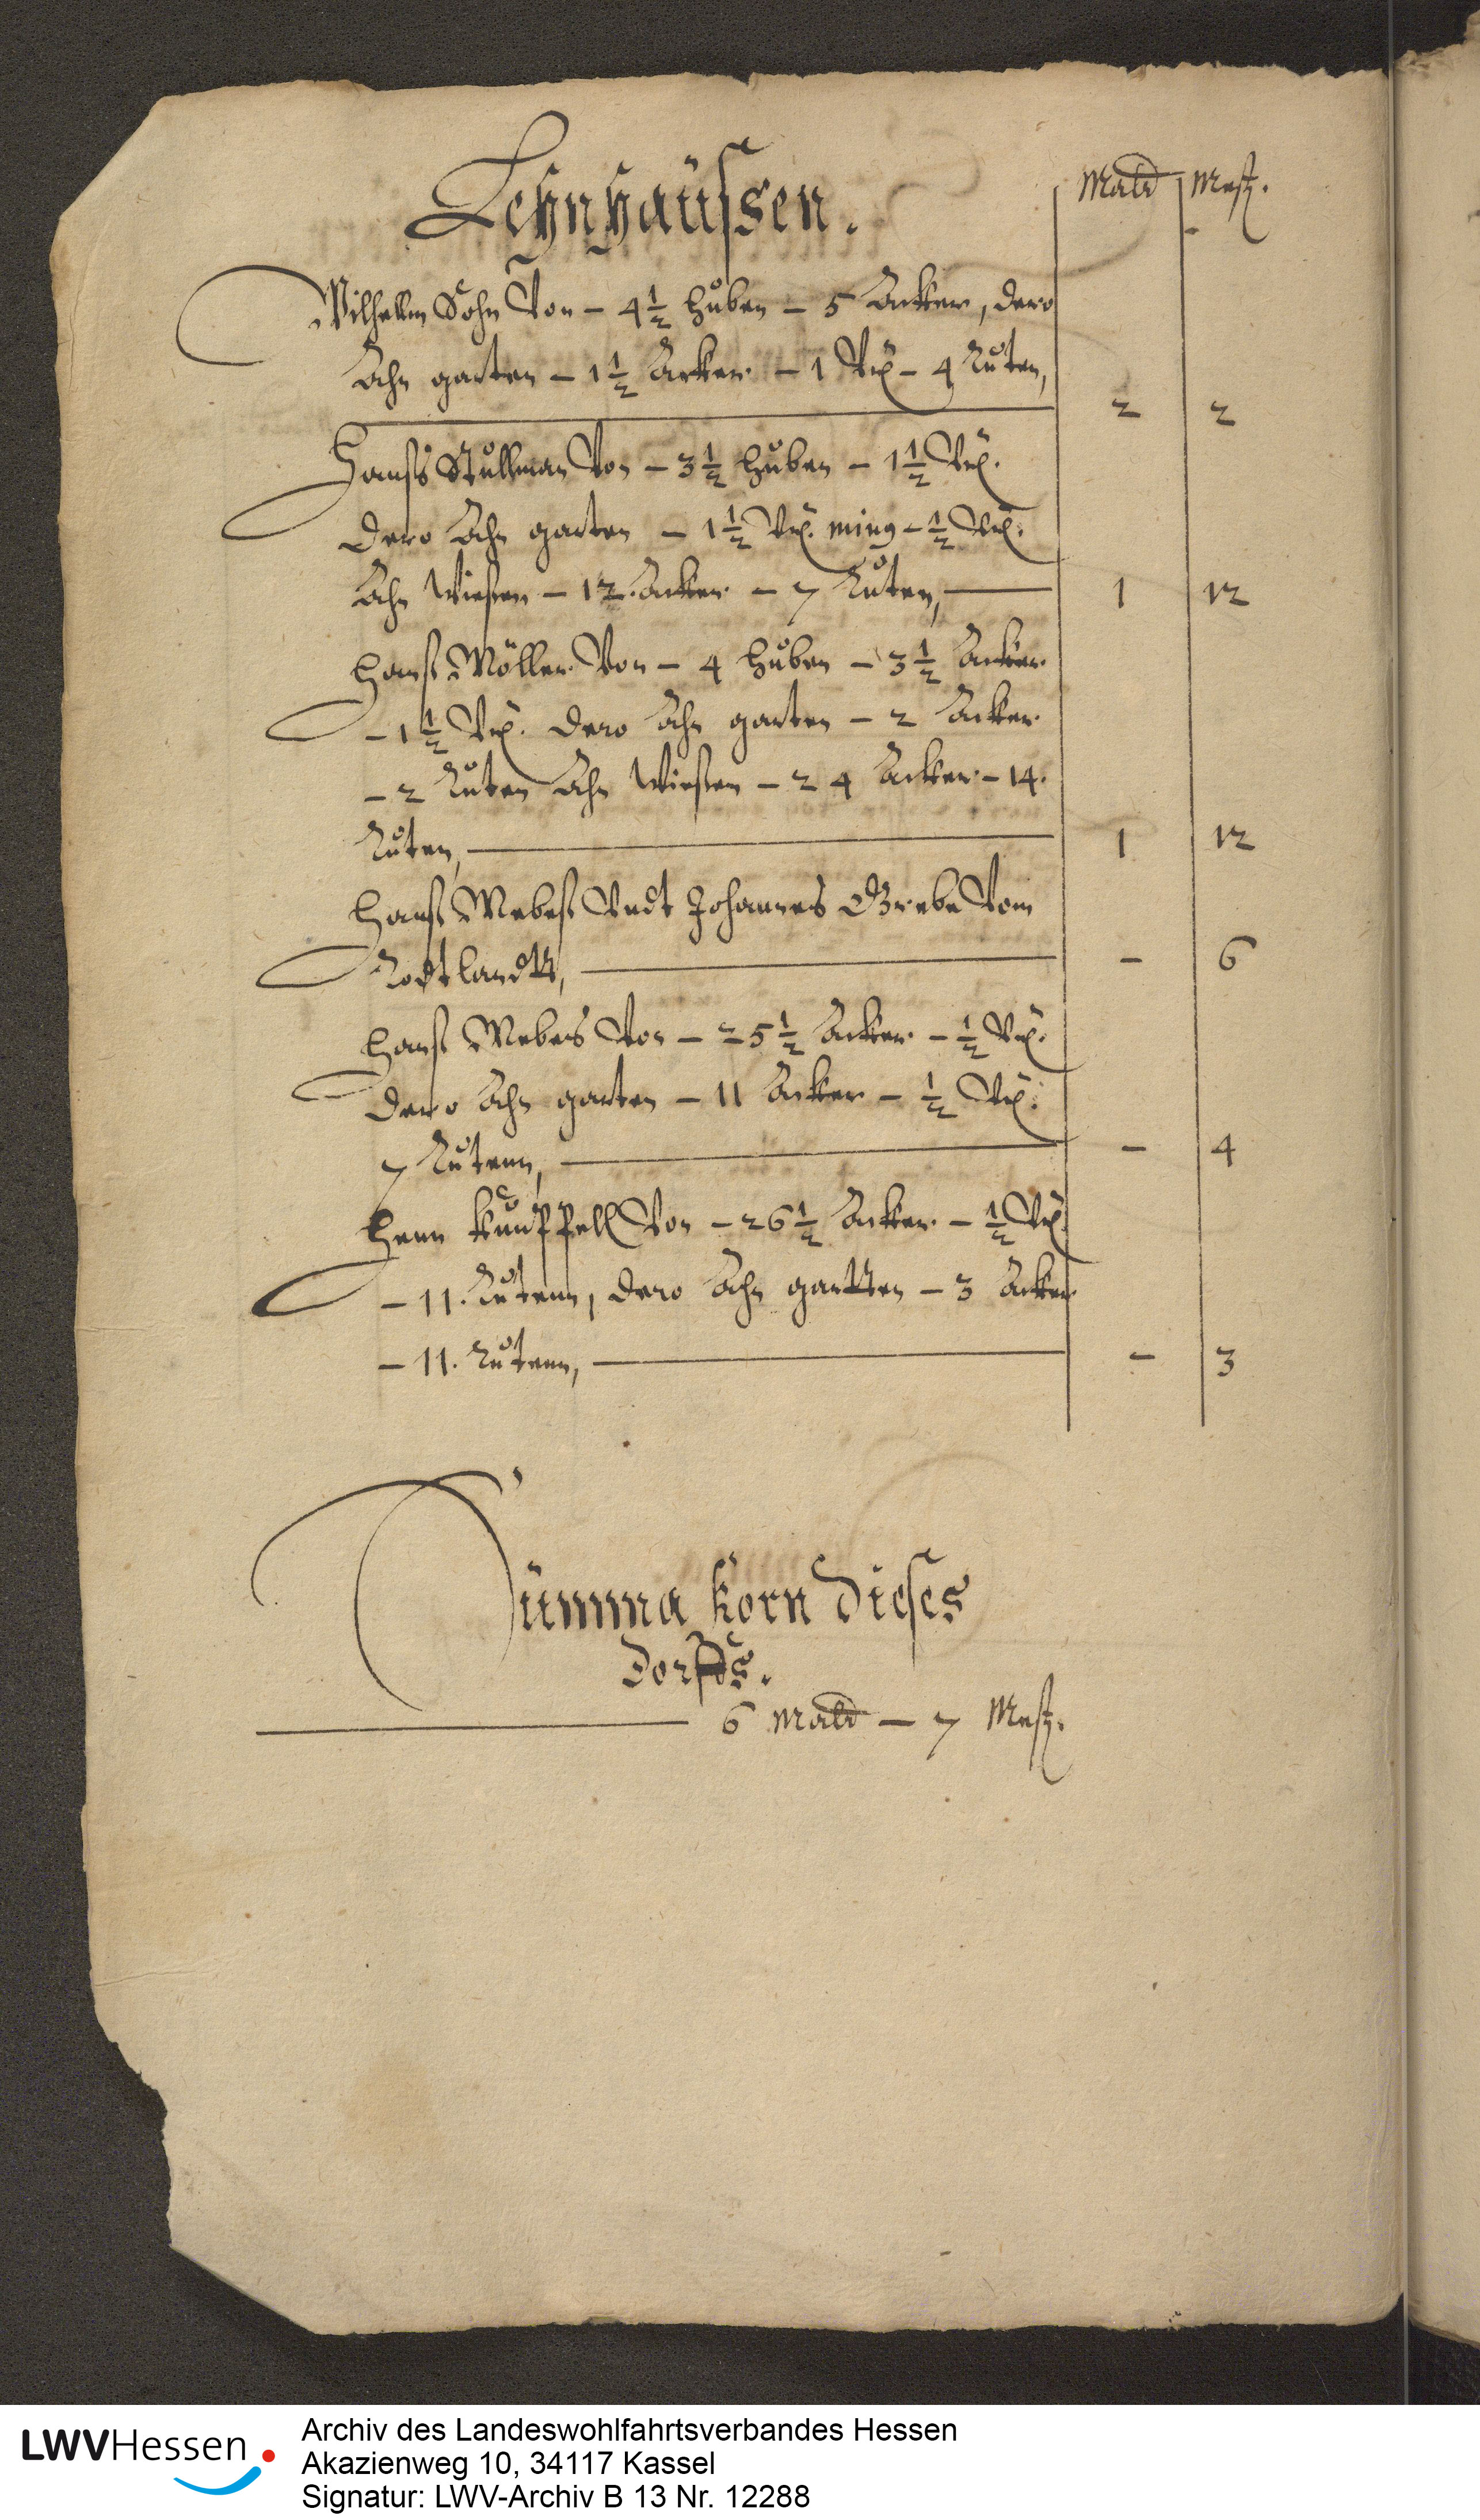 Lehnhaüssen.
Mald Mesz.
Wilhelm Söhn Von – 4 1/2 hůben – 5 Acker, dero
Ahn garten – 1 1/2 Acker – 1 Vrl – 4 Růten,
2 2
Hanß Stůllman Von – 3 1/2 hůben – 1 1/2 Vrl.
Dero Ahn garten – 1 1/2 Vrl. ming – 1/2 Vrl.
Ahn Wießen – 12. Acker – 7 Růten, 1 12
Hanß Möller Von – 4 hůben – 3 1/2 Acker
– 1 1/2 Vrl. dero Ahn garten – 2 Acker
– 2 Růten Ahn Wießen – 24 Acker – 14.
Růten, 1 12
Hanß Mebeß Vndt Johannes Grebe Vom
Rodtlandt, – 6
Hanß Mebes Von – 25 1/2 Acker – 1/2 Vrl.
dero Ahn garten – 11 Acker – 1/2 Vrl.
7 Růtenn, – 4
Henn Von – 26 1/2 Acker – 1/2 Vrl
– 11. Růtenn, dero Ahn gartten – 3 Acker
– 11. Růtenn, – 3
Sümma korn dieses
dorffs.
6 Mald – 7 Mesz.
LWVHessen
Archiv des Landeswohlfahrtsverbandes Hessen
Akazienweg 10, 34117 Kassel
Signatur: LWV-Archiv B 13 Nr. 12288